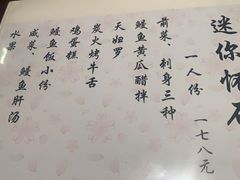 迷你怀石
一人份 一七八元
前菜、刺身三种
鳗鱼黄瓜醋拌
天妇罗
炭火烤牛舌
鸡蛋糕
鳗鱼饭小份
咸菜、鳗鱼肝汤
水果